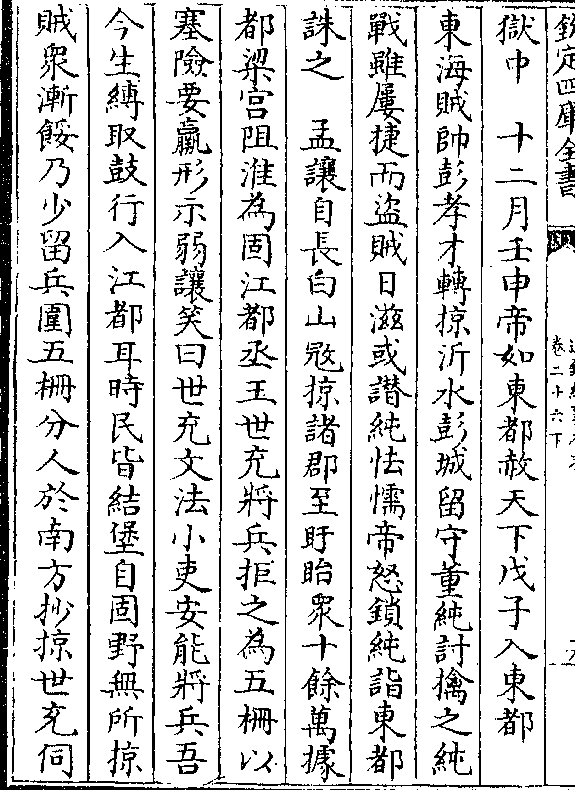 欽定四庫全書
卷二十六下
獄中　十二月壬申帝如東都赦天下戊子入東都
東海賊帥彭孝才轉掠沂水彭城留守董純討擒之純
戰雖屢捷而盜賊日滋或譖純怯懦帝怒鎖純詣東都
誅之　孟讓自長白山㓂掠諸郡至盱眙衆十餘萬據
都梁宫阻淮為固江都丞王世充將兵拒之為五柵以
塞險要羸形示弱讓笑曰世充文法小吏安能將兵吾
今生縛取鼓行入江都耳時民皆結堡自固野無所掠
賊衆漸餒乃少留兵圍五柵分人於南方抄掠世充伺